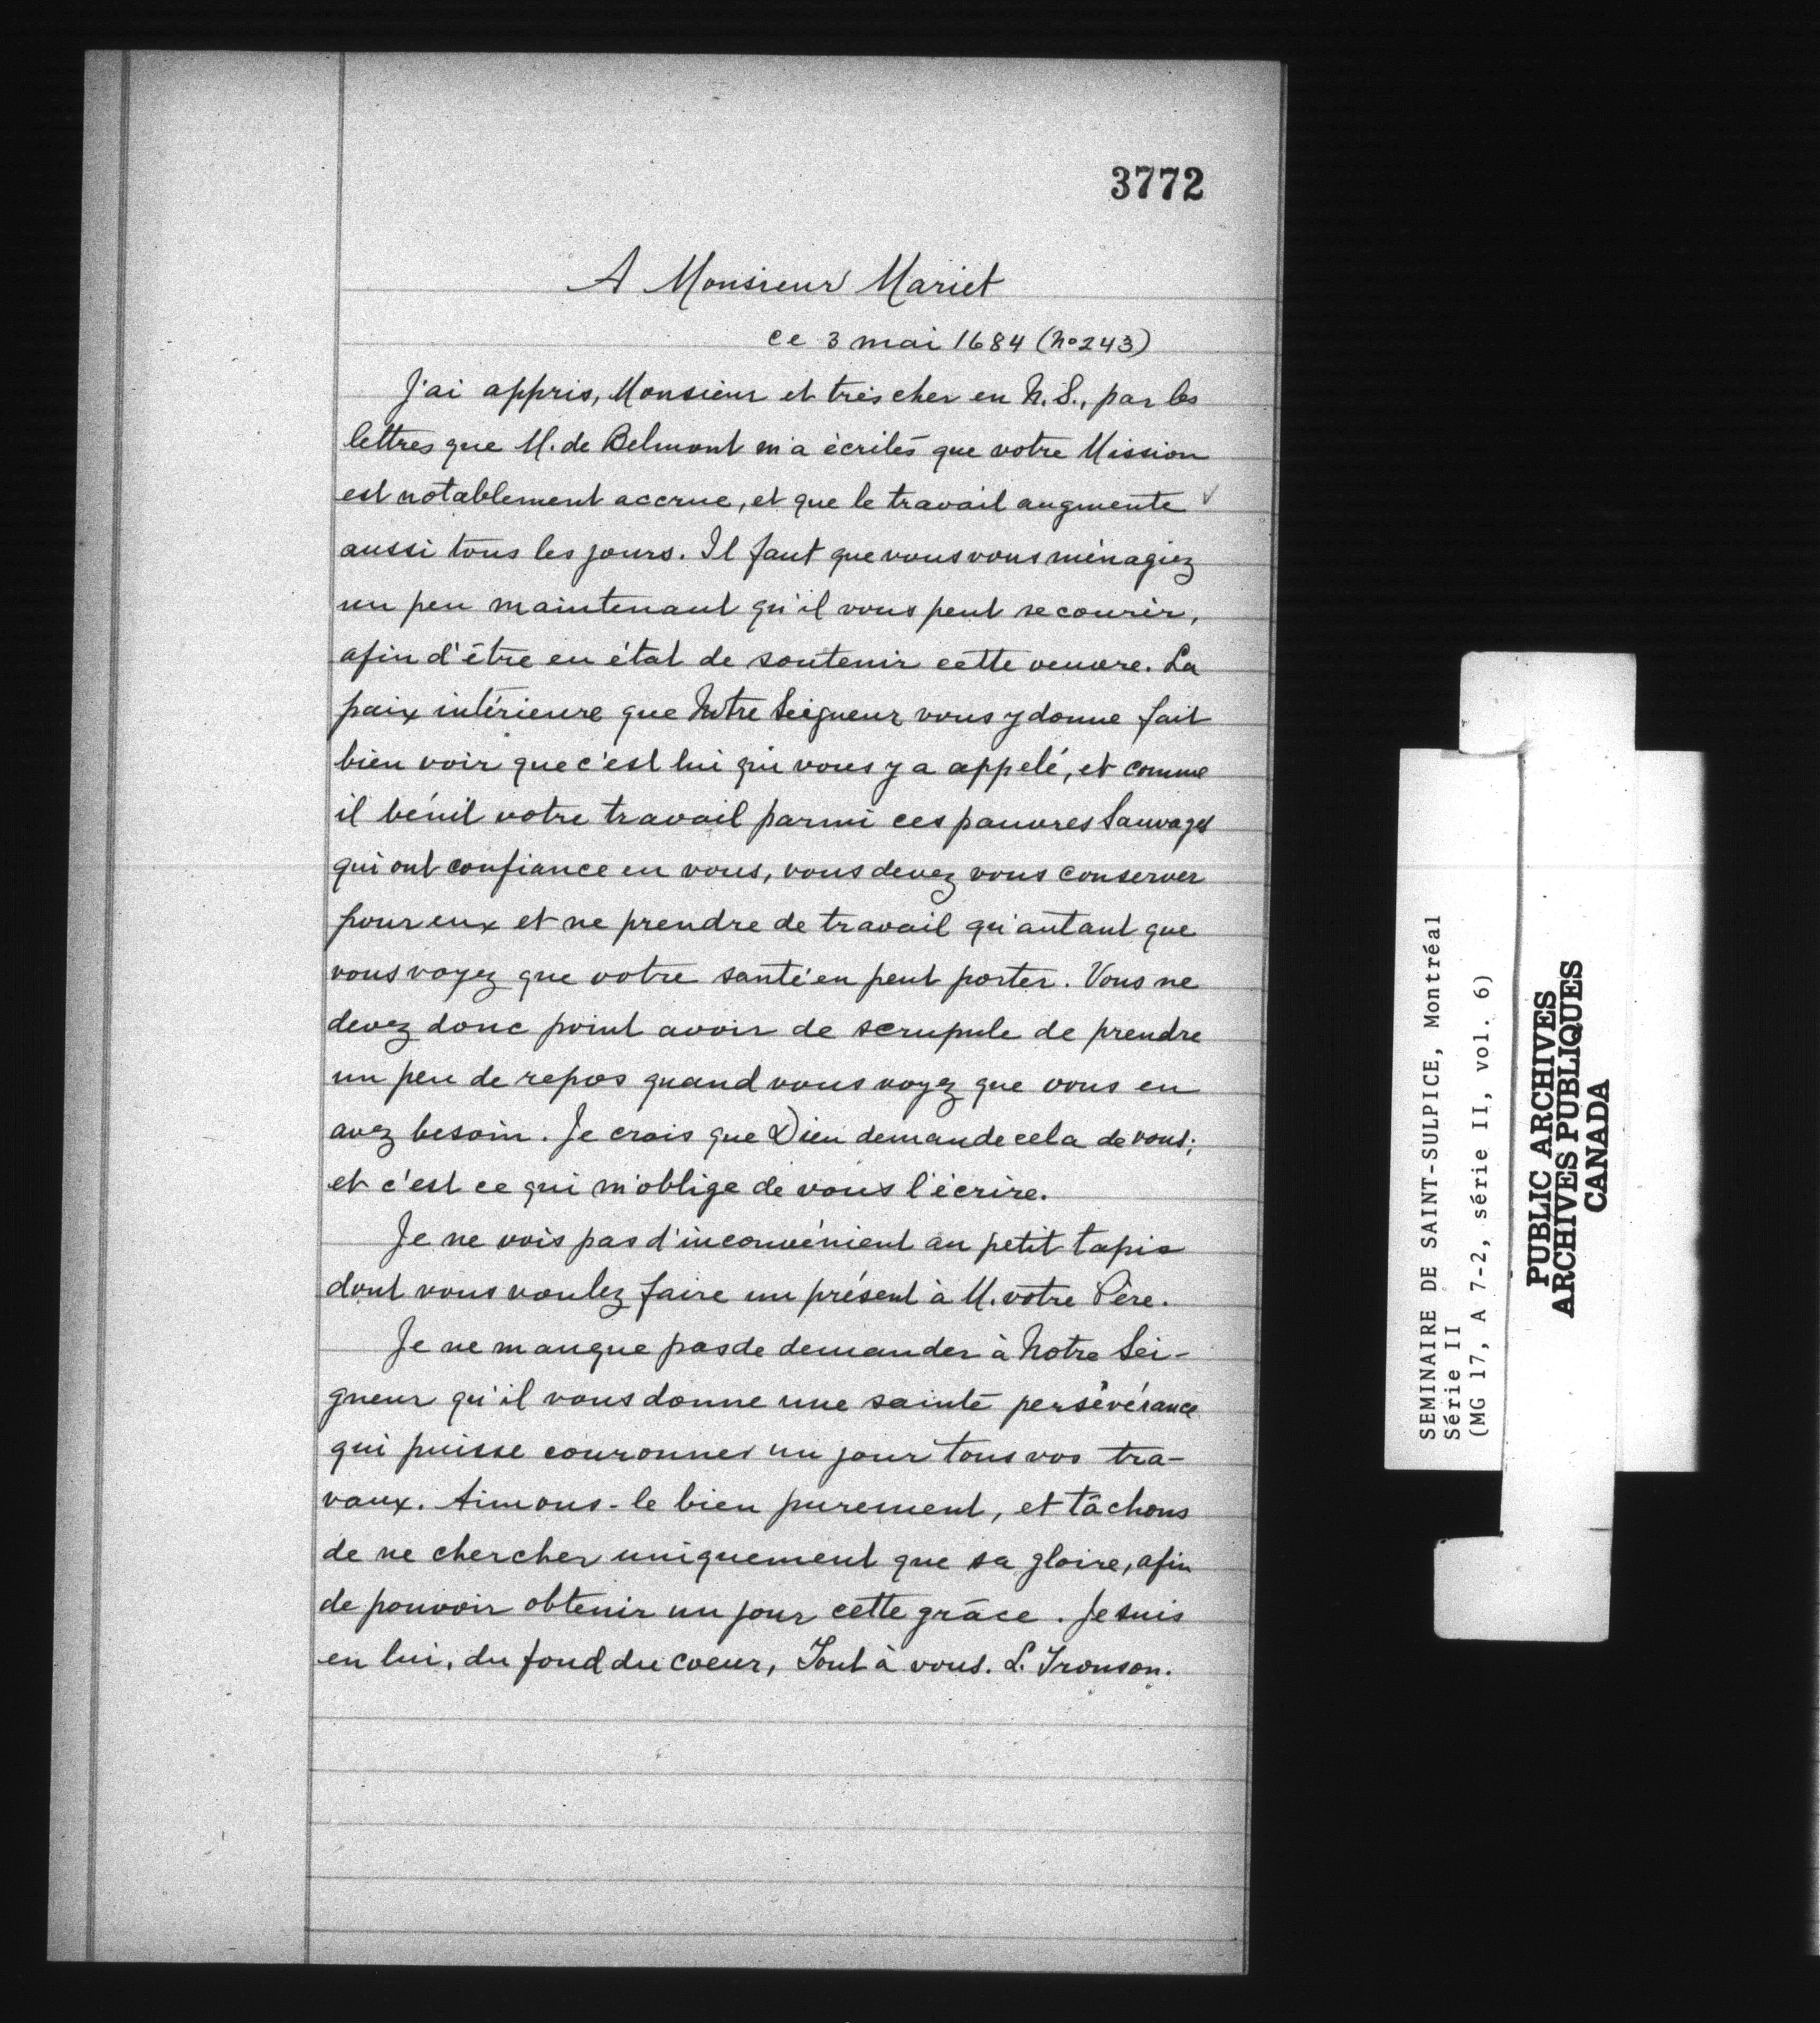 3772
A Monsieur Mariet
ce 3 mai 1684 (No 243)
J'ai appris, Monsieur et très cher en N.S., par les
lettres que M. de Belmont m'a écrites que votre Mission
est notablement accrue, et que le travail augmente
aussi tous les jours. Il faut que vous vous ménagiez
un peu maintenant qu'il vous peut secourir,
afin d'être en état de soutenir cette oeuvre. La
paix intérieure que Notre Seigneur vous y donne fait
bien voir que c'est lui qui vous y a appelé, et comme
il bénit votre travail parmi ces pauvres Sauvages
qui ont confiance en vous, vous devez vous conserver
pour eux et ne prendre de travail qu'autant que
vous voyez que votre santé en peut porter. Vous ne
devez donc point avoir de scrupule de prendre
un peu de repos quand vous voyez que vous en
avez besoin. Je crois que Dieu demande cela de vous;
et c'est ce qui m'oblige de vous l'écrire.
Je ne vois pas d'inconvénient au petit tapis
dont vous voulez faire un présent à M. votre Père.
Je ne manque pas de demander à Notre Sei-
gneur qu'il vous donne une sainte persévérance
qui puisse couronner un jour tous vos tra-
vaux. Aimons-le bien purement, et tâchons
de ne chercher uniquement que sa gloire, afin
de pouvoir obtenir un jour cette grâce. Je suis
en lui, du fond du coeur, Tout à vous. L. Tronson.
SEMINAIRE DE SAINT-SULPICE, Montréal
Série II
(MG 17, A 7-2, série II, vol. 6)
PUBLIC ARCHIVES
ARCHIVES PUBLIQUES
CANADA